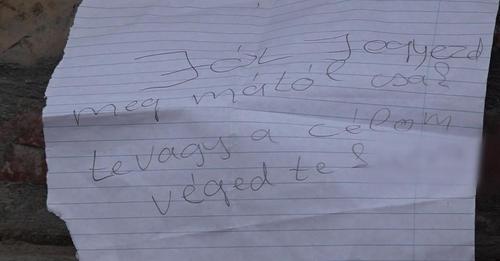 Jól Jogyezd
meg mától csak
te vagy a célom
véged te